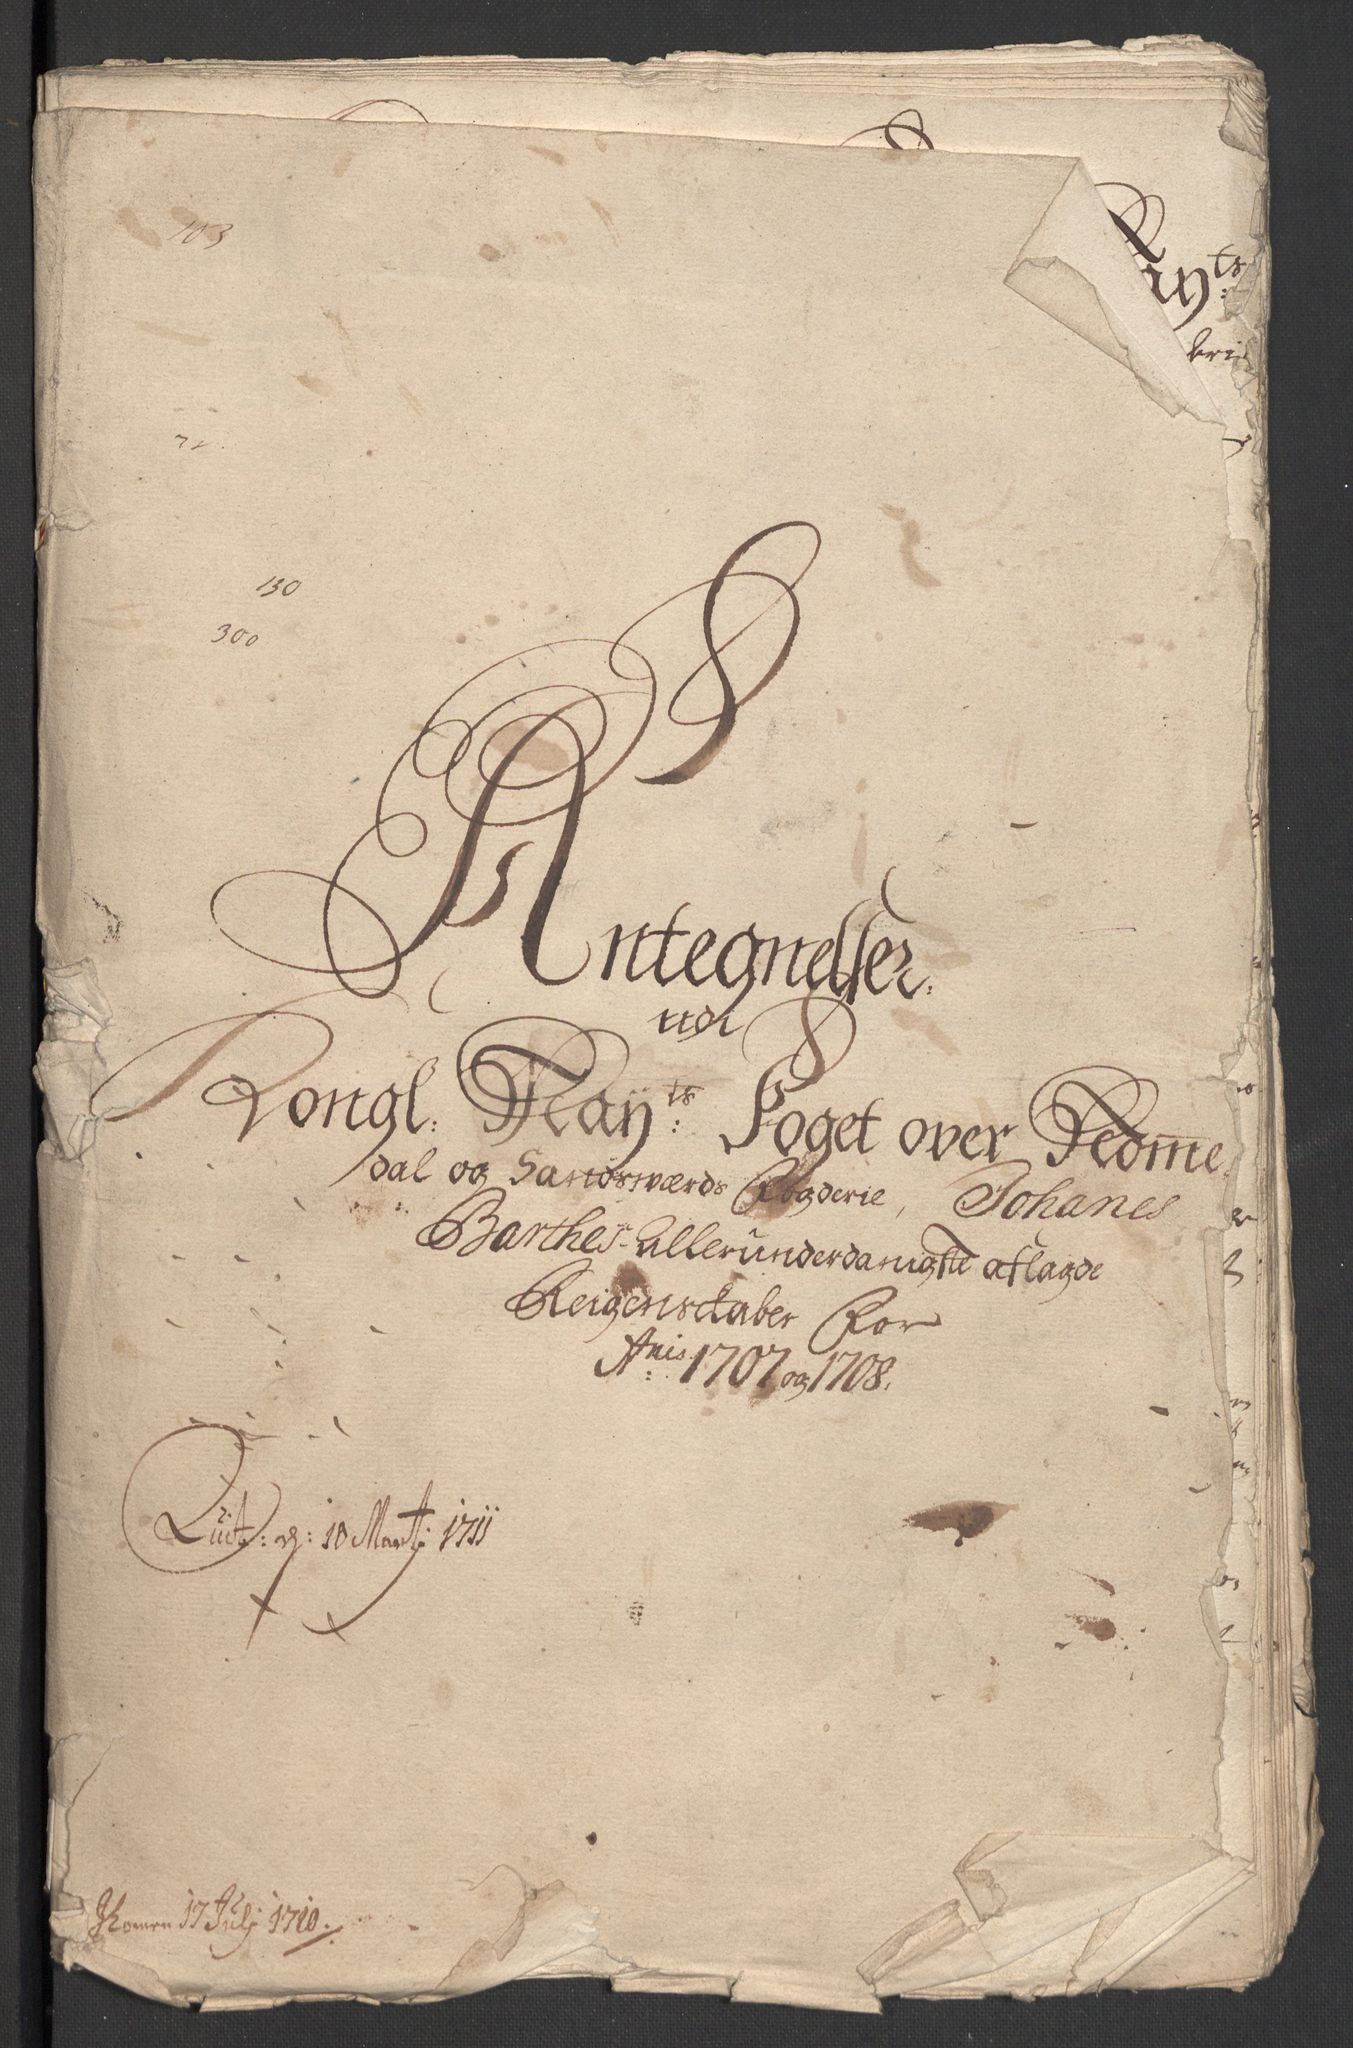 103
ayts:
bri
71.
130
300
Antegnelser.
udi
Kongl: Mayts: Foget over Nome
dal og Sandsværds Fogderie, Johanes
Barthes Allerunderdanigste aflagde
Reigenskaber For
Anis: 1707 og 1708.
Quit: d: 18 Martj: 1711
Komen 17 Julj 1710.